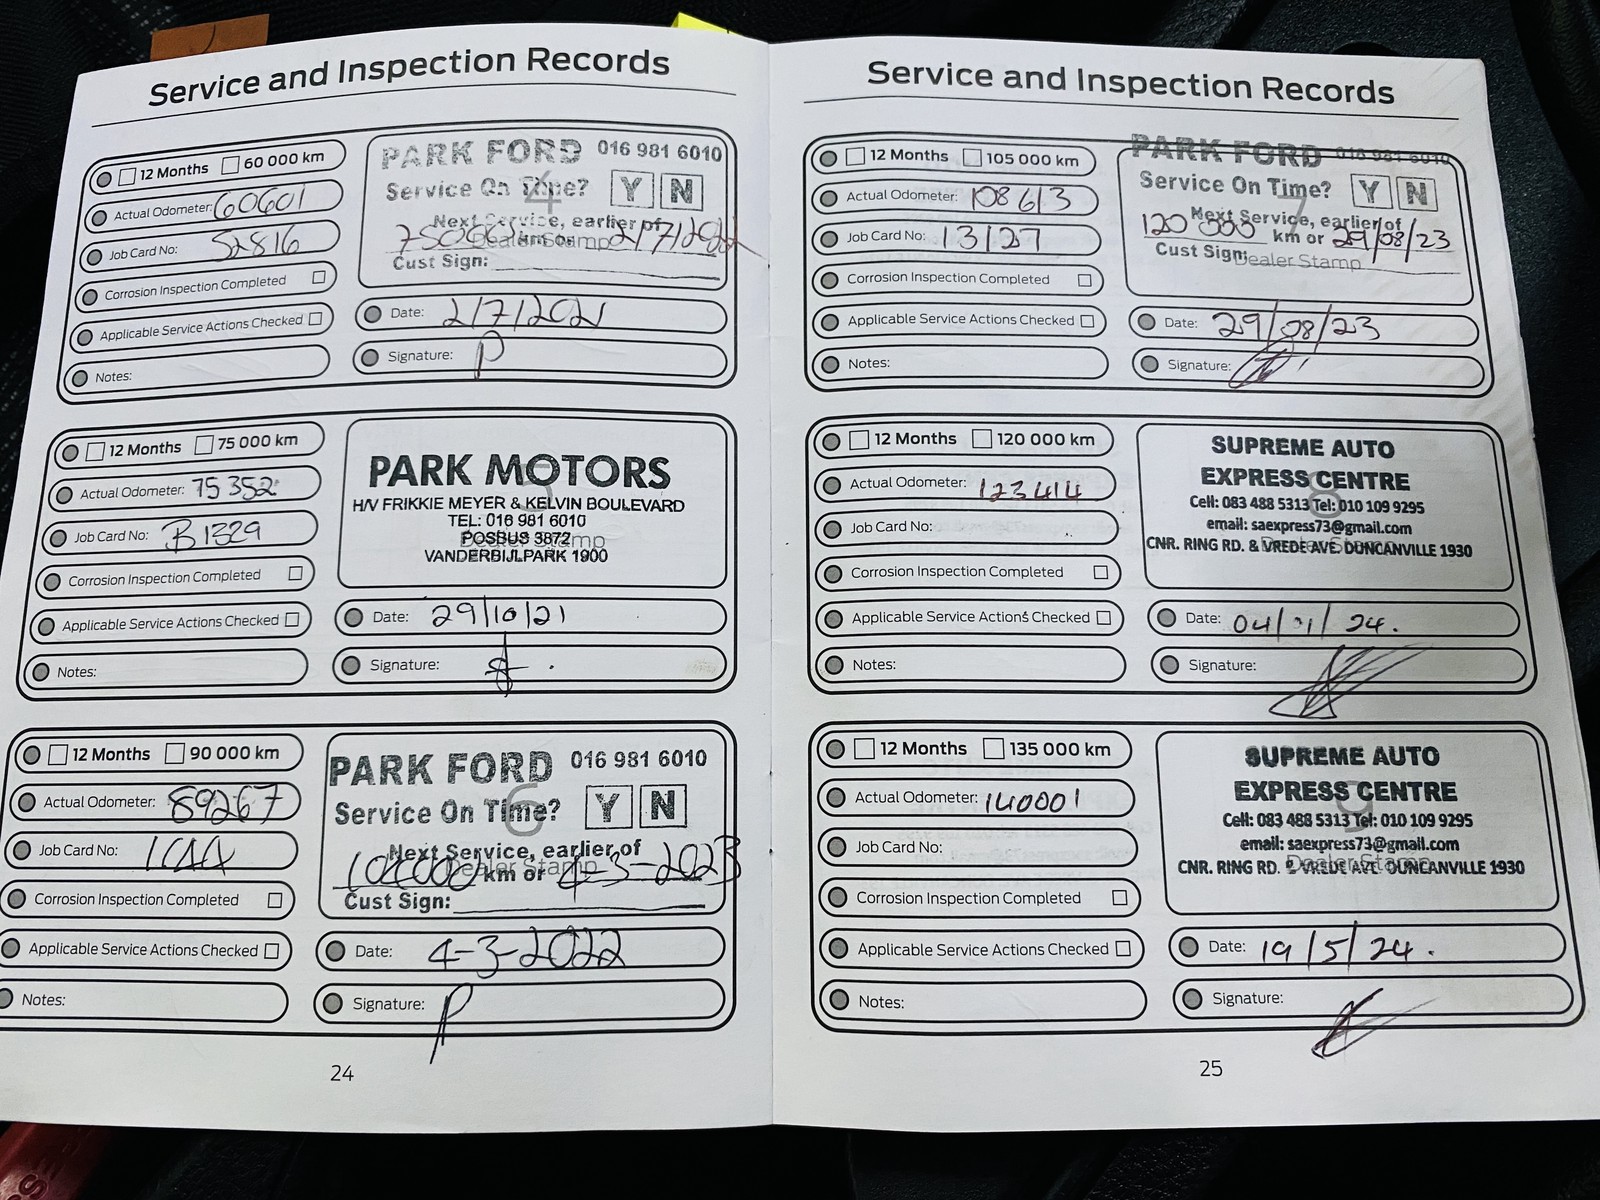 Service and Inspection Records
12 Months 60 000 km
Actual Odometer: 60601
Job Card No: 52816
Corrosion Inspection Completed
Applicable Service Actions Checked
Notes:
PARK FORD 016 981 6010
Service On Time? Y N
Next Service, earlier of
km or 2/7/2022
Dealer Stamp
Cust Sign:
Date: 2/7/2021
Signature:
12 Months 75 000 km
Actual Odometer: 75352
Job Card No: B1329
Corrosion Inspection Completed
Applicable Service Actions Checked
Notes:
5
PARK MOTORS
H/V FRIKKIE MEYER & KELVIN BOULEVARD
TEL: 016 981 6010
POSBUS 3872
Dealer Stamp
VANDERBIJLPARK 1900
Date: 29/10/21
Signature:
12 Months 90 000 km
Actual Odometer: 89267
Job Card No:
Corrosion Inspection Completed
Applicable Service Actions Checked
Notes:
PARK FORD 016 981 6010
Service On Time? Y N
6
Next Service, earlier of
km or 4-3-2023
Dealer Stamp
Cust Sign:
Date: 4-3-2022
Signature:
24
Service and Inspection Records
12 Months 105 000 km
Actual Odometer: 108613
Job Card No: 13127
Corrosion Inspection Completed
Applicable Service Actions Checked
Notes:
PARK FORD 016 981 6010
Service On Time? Y N
7
Next Service, earlier of
120 km or 29/08/23
Cust Sign:
Dealer Stamp
Date: 29/08/23
Signature:
12 Months 120 000 km
Actual Odometer: 123414
Job Card No:
Corrosion Inspection Completed
Applicable Service Actions Checked
Notes:
SUPREME AUTO
EXPRESS CENTRE
8
Cell: 083 488 5313 Tel: 010 109 9295
email: saexpress73@gmail.com
CNR. RING RD. & VREDE AVE. DUNCANVILLE 1930
Dealer Stamp
Date: 04/01/24.
Signature:
12 Months 135 000 km
Actual Odometer: 140001
Job Card No:
Corrosion Inspection Completed
Applicable Service Actions Checked
Notes:
SUPREME AUTO
EXPRESS CENTRE
9
Cell: 083 488 5313 Tel: 010 109 9295
email: saexpress73@gmail.com
CNR. RING RD. & VREDE AVE. DUNCANVILLE 1930
Dealer Stamp
Date: 19/5/24.
Signature:
25